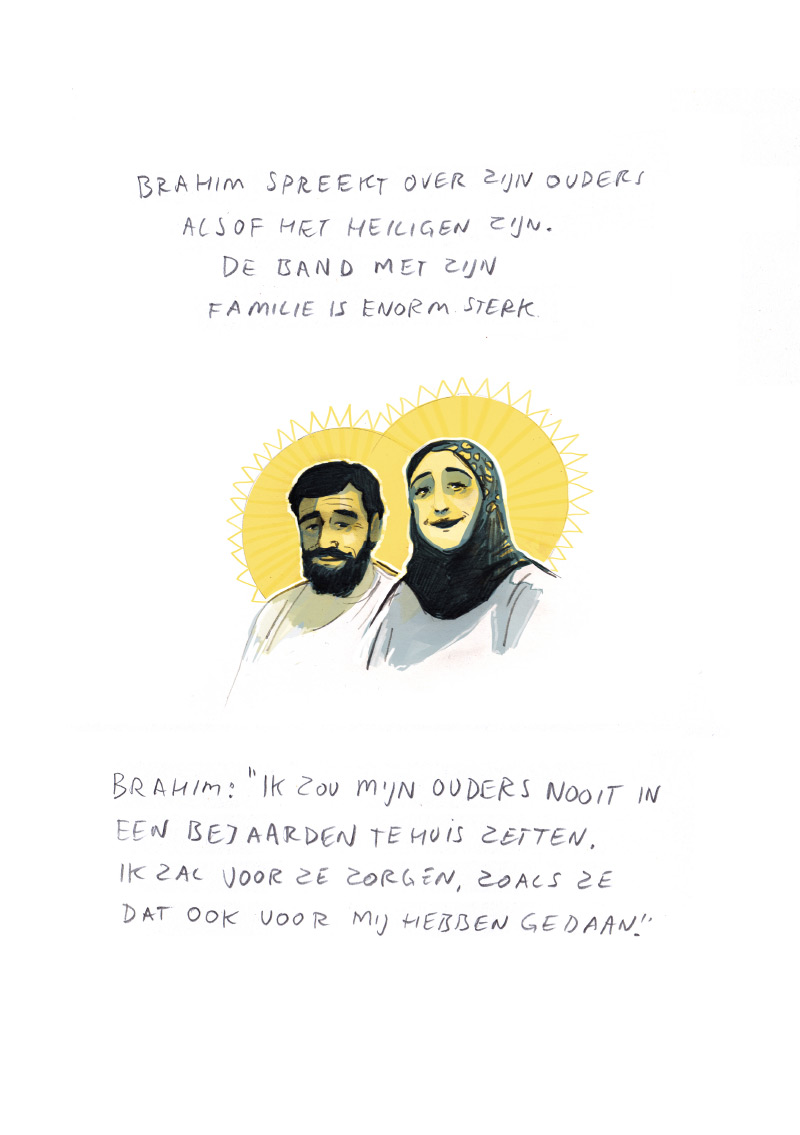 BRAHIM SPREEKT OVER ZIJN OUDERS
ALSOF HET HEILIGEN ZIJN.
DE BAND MET ZIJN
FAMILIE IS ENORM STERK.
BRAHIM: "IK ZOU MIJN OUDERS NOOIT IN
EEN BEJAARDEN TEHUIS ZETTEN.
IK ZAL VOOR ZE ZORGEN, ZOALS ZE
DAT OOK VOOR MIJ HEBBEN GEDAAN!"